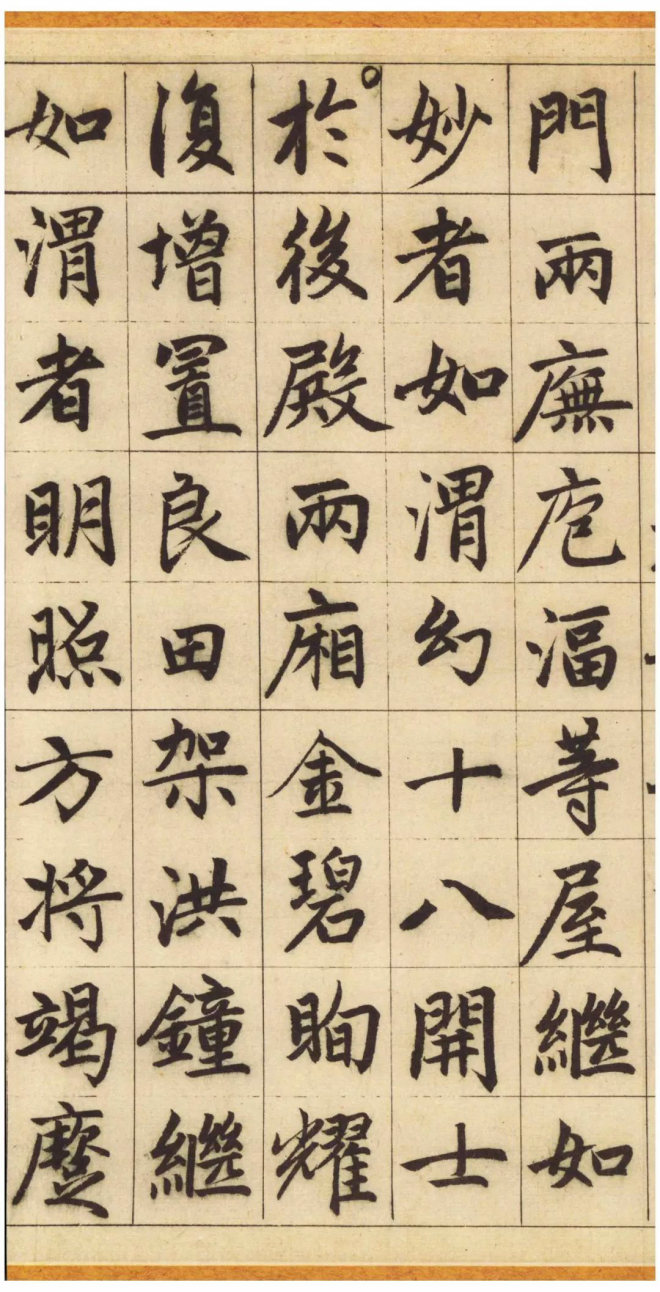 門兩廡庖湢等屋繼如
妙者如渭幻十八開士
於後殿兩廂金碧眴耀
復增置良田架洪鐘繼
如渭者明照方將竭蹷